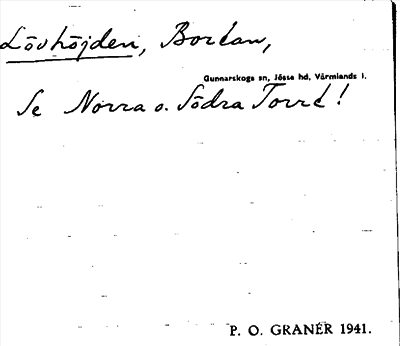 Lövhöjden, Bortan,
Gunnarskogs sn, Jösse hd, Värmlands l.
Se Norra o. Södra Torrå!
P. O. GRANÉR 1941.